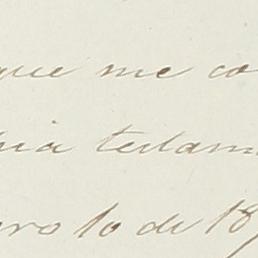 que me co
ria testam
ero 10 de 18